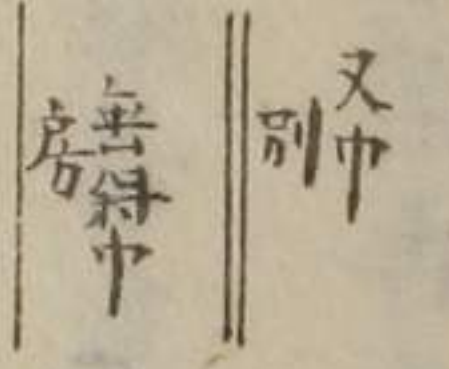 又巾
別
無
巾
房